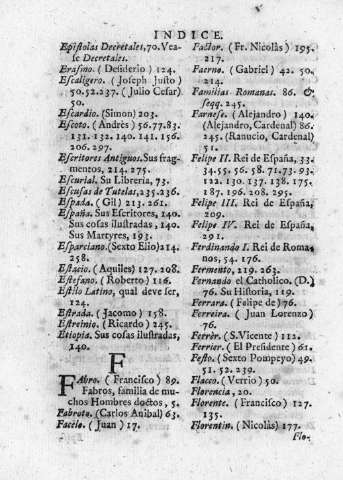 INDICE.
Epistolas Decretales, 70. Vea-
se Decretales.
Erasmo. (Desiderio) 124.
Escaligero. (Joseph Justo)
50.52.237. (Julio Cesar)
50.
Escardio. (Simon) 203.
Escoto. (Andrès) 56.77.83.
131. 132. 140. 141. 156.
206. 297.
Escritores Antiguos. Sus frag-
mentos, 214. 275.
Escurial. Su Libreria, 73.
Escusas de Tutelas, 235.236.
Espada. (Gil) 213. 261.
España. Sus Escritores, 140.
Sus cosas ilustradas, 140.
Sus Martyres, 193.
Esparciano. (Sexto Elio) 214.
258.
Estacio. (Aquiles) 127. 208.
Estefano. (Roberto) 116.
Estilo Latino, qual deve ser,
124.
Estrada. (Jacomo) 158.
Estreinio. (Ricardo) 245.
Etiopia. Sus cosas ilustradas,
140.
F
FAbro. (Francisco) 89.
Fabros, familia de mu-
chos Hombres doctos, 5.
Fabroto. (Carlos Anibal) 63.
Facèlo. (Juan) 17.
Factor. (Fr. Nicolàs) 195.
217.
Faerno. (Gabriel) 42. 50.
214.
Familias Romanas. 86. &
seqq. 245.
Farnese. (Alejandro) 140.
(Alejandro, Cardenal) 86.
245. (Ranucio, Cardenal)
51.
Felipe II. Rei de España, 33.
34. 55. 56. 58. 71. 73. 93.
122. 130. 137. 138. 175.
187. 196. 208. 295.
Felipe III. Rei de España,
209.
Felipe IV. Rei de España,
291.
Ferdinando I. Rei de Roma-
nos, 54. 176.
Fermento, 219. 263.
Fernando el Catholico. (D.)
76. Su Historia, 119.
Ferrara. (Felipe de) 76.
Ferreira. (Juan Lorenzo)
76.
Ferrèr. (S. Vicente) 112.
Ferrier. (El Presidente) 61.
Festo. (Sexto Pompeyo) 49.
51. 52. 239.
Flacco. (Verrio) 50.
Florencia, 20.
Florente. (Francisco) 127.
135.
Florentin. (Nicolàs) 177.
Flo-